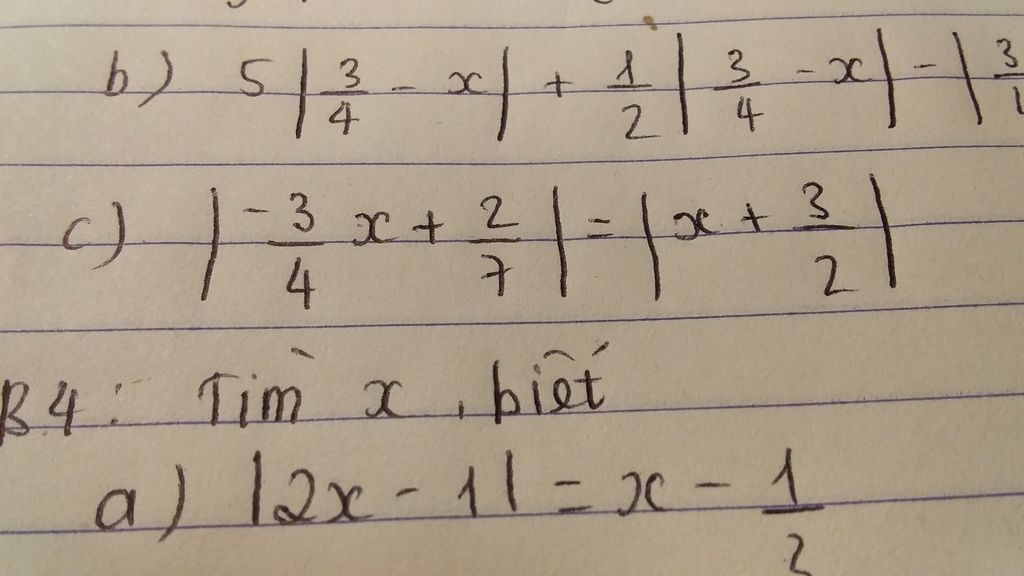 b) 5|3/4 - x| + 1/2|3/4 - x| - |3/
c) |-3/4 x + 2/7| = |x + 3/2|
B4: Tìm x, biết
a) |2x - 1| = x - 1/2